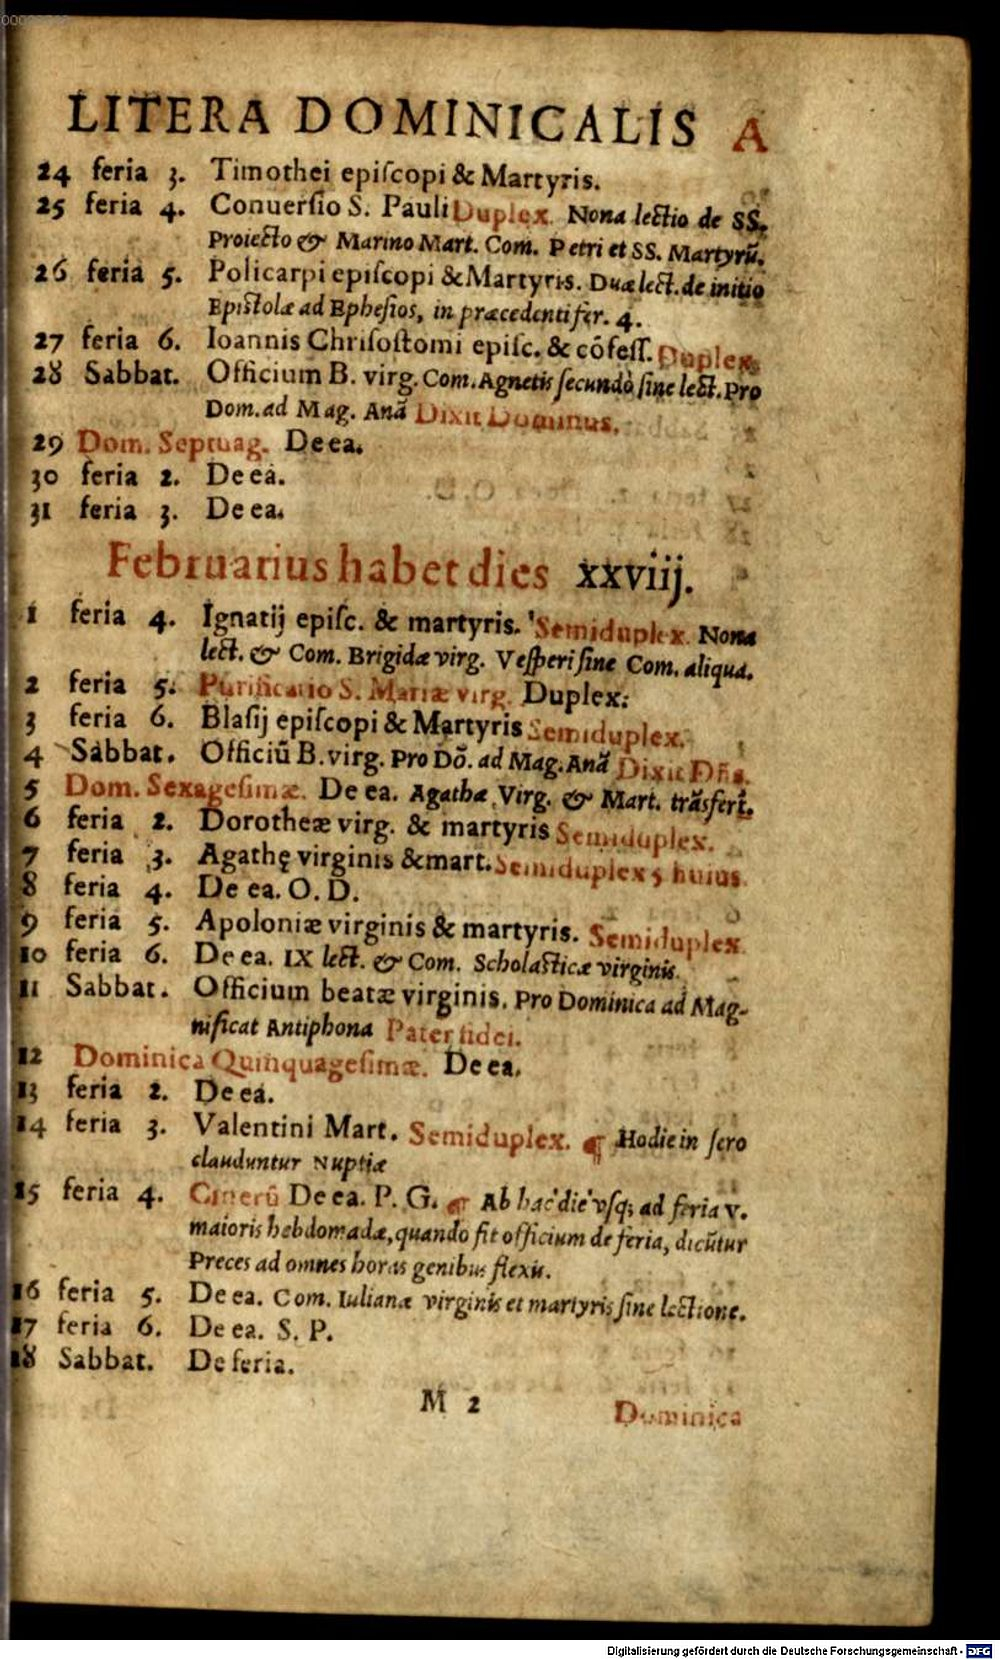 LITERA DOMINICALIS A
24 feria 3. Timothei epiſcopi & Martyris.
25 feria 4. Conuerſio S. Pauli Duplex. Nona lectio de SS.
Proiecto & Marino Mart. Com. Petri et SS. Martyrũ.
26 feria 5. Policarpi epiſcopi & Martyris. Duæ lect. de initio
Epiſtolæ ad Epheſios, in præcedenti fer. 4.
27 feria 6. Ioannis Chriſoſtomi epiſc. & cõfeſſ. Duplex.
28 Sabbat. Officium B. virg. Com. Agnetis ſecundò ſine lect. Pro
Dom. ad Mag. Anã Dixit Dominus.
29 Dom. Septuag. De ea.
30 feria 2. De ea.
31 feria 3. De ea.
Februarius habet dies xxviij.
1 feria 4. Ignatij epiſc. & martyris. Semiduplex. Nona
lect. & Com. Brigidæ virg. Veſperi ſine Com. aliqua.
2 feria 5. Purificatio S. Mariæ virg. Duplex:
3 feria 6. Blaſij epiſcopi & Martyris Semiduplex.
4 Sabbat. Officiũ B. virg. Pro Dõ. ad Mag. Anã Dixit Dñs.
5 Dom. Sexageſimæ. De ea. Agathæ Virg. & Mart. trãſfert.
6 feria 2. Dorotheæ virg. & martyris Semiduplex.
7 feria 3. Agathę virginis & mart. Semiduplex 5 huius.
8 feria 4. De ea. O. D.
9 feria 5. Apoloniæ virginis & martyris. Semiduplex.
10 feria 6. De ea. IX lect. & Com. Scholaſticæ virginis.
11 Sabbat. Officium beatæ virginis. Pro Dominica ad Mag-
nificat Antiphona Pater fidei.
12 Dominica Quinquageſimæ. De ea.
13 feria 2. De ea.
14 feria 3. Valentini Mart. Semiduplex. ¶ Hodie in ſero
clauduntur Nuptiæ
15 feria 4. Cinerũ De ea. P. G. ¶ Ab hac die vſq; ad feria v.
maioris hebdomadæ, quando fit officium de feria, dicũtur
Preces ad omnes horas genibus flexis.
16 feria 5. De ea. Com. Iulianæ virginis et martyris ſine lectione.
17 feria 6. De ea. S. P.
18 Sabbat. De feria.
M 2
Dominica
Digitalisierung gefördert durch die Deutsche Forschungsgemeinschaft - DFG